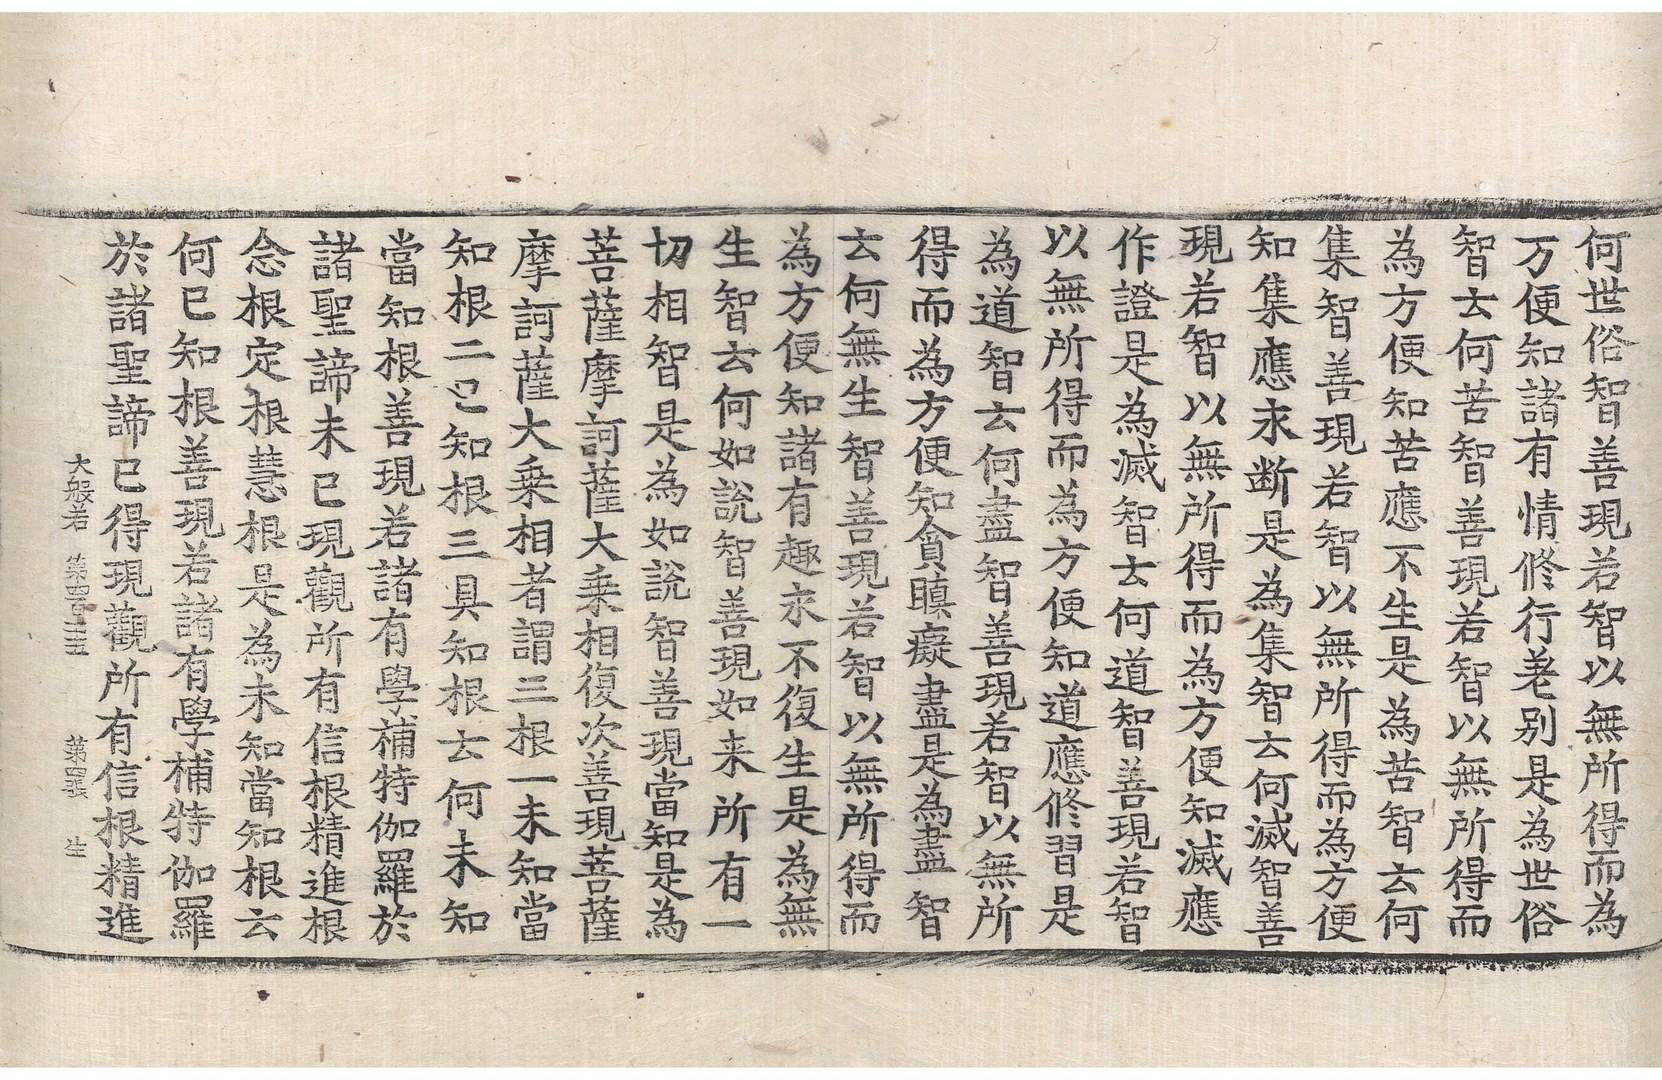 何世俗智善現若智以無所得而為
万便知諸有情修行差別是為世俗
智去何苦智善現若智以無所得而
為方便知苦應不生是為苦智去何
集智善現若智以無所得而為方便
知集應永断是為集智去何滅智善
現若智以無所得而為方便知滅應
作證是為滅智去何道智善現若智
以無所得而為方便知道應修習是
為道智去何盡智善現若智以無所
得而為方便知貪瞋癡盡是為盡智
去何無生智善現若智以無所得而
為方便知諸有趣永不復生是為無
生智去何如說智善現如来所有一
切相智是為如說智善現當知是為
菩薩摩訶薩大乗相復次善現菩薩
摩訶薩大乗相者謂三根一未知當
知根二已知根三具知根去何未知
當知根善現若諸有學補特伽羅於
諸聖諦未已現觀所有信根精進根
念根定根慧根是為未知當知根云
何已知根善現若諸有學補特伽羅
於諸聖諦已得現觀所有信根精進
大般若 第 第 生